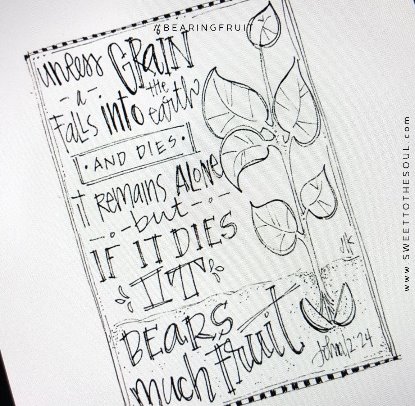 #BEARINGFRUIT
unless GRAIN
-a- the
Falls into earth
·AND DIES·
it REMAINS ALONE
-but-
IF IT DIES
IT
BEARS
much fruit
John 12·24
JK
www.SWEETTOTHESOUL.com